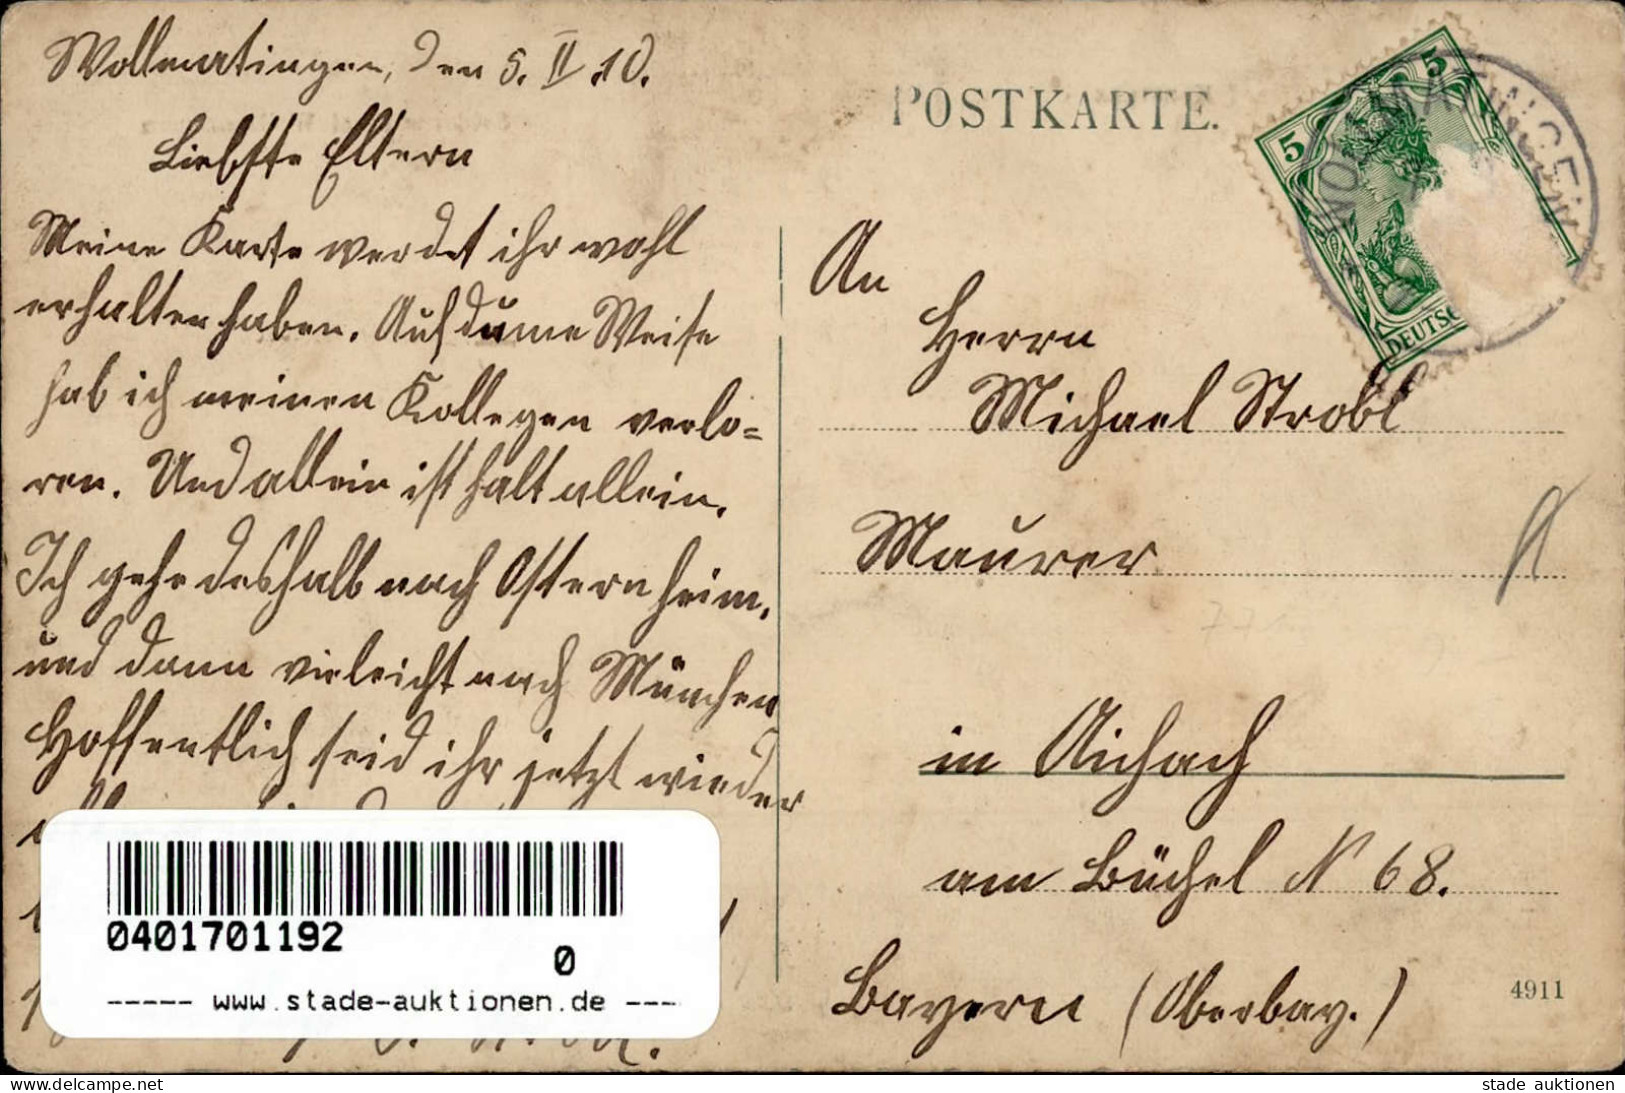 Wollmatingen, den 5. II. 10.
Liebste Eltern
Meine Karte werdet ihr wohl
erhalten haben. Auf dume Weise
hab ich meinen Kollegen verlo=
ren. Und allein ist halt allein.
Ich gehe deshalb nach Ostern heim,
und dann vieleicht nach München
Hoffentlich seid ihr jetzt wieder
POSTKARTE.
5
5
DEUTSC
WOLLMATINGEN
An
Herrn
Michael Strobl
Maurer
in Aichach
am Büchel N 68.
Bayern (Oberbay.)
4911
0401701192
0
----- www.stade-auktionen.de ---
https://www.delcampe.net/
stade auktionen